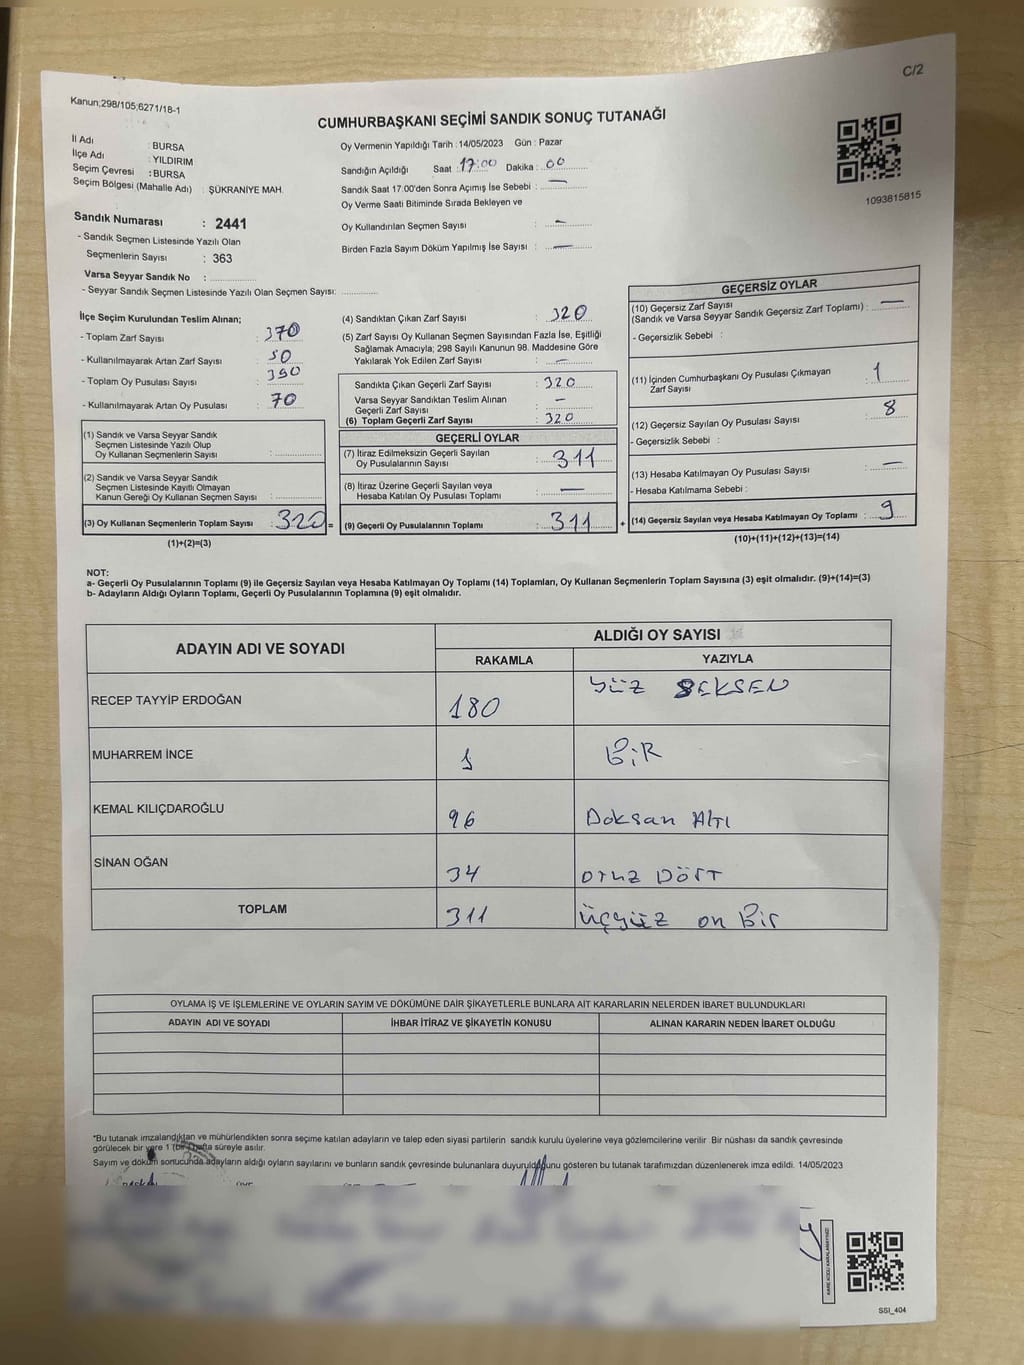 C/2
Kanun;298/105;6271/18-1
CUMHURBAŞKANI SEÇİMİ SANDIK SONUÇ TUTANAĞI
İl Adı : BURSA
İlçe Adı : YILDIRIM
Seçim Çevresi : BURSA
Seçim Bölgesi (Mahalle Adı) : ŞÜKRANİYE MAH.
Sandık Numarası : 2441
- Sandık Seçmen Listesinde Yazılı Olan
Seçmenlerin Sayısı : 363
Varsa Seyyar Sandık No :
- Seyyar Sandık Seçmen Listesinde Yazılı Olan Seçmen Sayısı:
Oy Vermenin Yapıldığı Tarih : 14/05/2023 Gün : Pazar
Sandığın Açıldığı Saat : 17:00 Dakika : 00
Sandık Saat 17:00'den Sonra Açımış İse Sebebi : —
Oy Verme Saati Bitiminde Sırada Bekleyen ve
Oy Kullandırılan Seçmen Sayısı : –
Birden Fazla Sayım Döküm Yapılmış İse Sayısı : —
1093815815
İlçe Seçim Kurulundan Teslim Alınan;
- Toplam Zarf Sayısı : 370
- Kullanılmayarak Artan Zarf Sayısı : 50
- Toplam Oy Pusulası Sayısı : 390
- Kullanılmayarak Artan Oy Pusulası : 70
(1) Sandık ve Varsa Seyyar Sandık
Seçmen Listesinde Yazılı Olup
Oy Kullanan Seçmenlerin Sayısı :
(2) Sandık ve Varsa Seyyar Sandık
Seçmen Listesinde Kayıtlı Olmayan
Kanun Gereği Oy Kullanan Seçmen Sayısı :
(3) Oy Kullanan Seçmenlerin Toplam Sayısı : 320 =
(1)+(2)=(3)
(4) Sandıktan Çıkan Zarf Sayısı : 320
(5) Zarf Sayısı Oy Kullanan Seçmen Sayısından Fazla İse, Eşitliği
Sağlamak Amacıyla; 298 Sayılı Kanunun 98. Maddesine Göre
Yakılarak Yok Edilen Zarf Sayısı : –
Sandıkta Çıkan Geçerli Zarf Sayısı : 320
Varsa Seyyar Sandıktan Teslim Alınan
Geçerli Zarf Sayısı : –
(6) Toplam Geçerli Zarf Sayısı : 320
GEÇERLİ OYLAR
(7) İtiraz Edilmeksizin Geçerli Sayılan
Oy Pusulalarının Sayısı : 311
(8) İtiraz Üzerine Geçerli Sayılan veya
Hesaba Katılan Oy Pusulası Toplamı : —
(9) Geçerli Oy Pusulalarının Toplamı : 311 +
GEÇERSİZ OYLAR
(10) Geçersiz Zarf Sayısı
(Sandık ve Varsa Seyyar Sandık Geçersiz Zarf Toplamı) : —
- Geçersizlik Sebebi :
(11) İçinden Cumhurbaşkanı Oy Pusulası Çıkmayan
Zarf Sayısı : 1
(12) Geçersiz Sayılan Oy Pusulası Sayısı : 8
- Geçersizlik Sebebi :
(13) Hesaba Katılmayan Oy Pusulası Sayısı : —
- Hesaba Katılmama Sebebi :
(14) Geçersiz Sayılan veya Hesaba Katılmayan Oy Toplamı : 9
(10)+(11)+(12)+(13)=(14)
NOT:
a- Geçerli Oy Pusulalarının Toplamı (9) ile Geçersiz Sayılan veya Hesaba Katılmayan Oy Toplamı (14) Toplamları, Oy Kullanan Seçmenlerin Toplam Sayısına (3) eşit olmalıdır. (9)+(14)=(3)
b- Adayların Aldığı Oyların Toplamı, Geçerli Oy Pusulalarının Toplamına (9) eşit olmalıdır.
ADAYIN ADI VE SOYADI ALDIĞI OY SAYISI
RAKAMLA YAZIYLA
RECEP TAYYİP ERDOĞAN 180 Yüz SEKSEN
MUHARREM İNCE 1 BİR
KEMAL KILIÇDAROĞLU 96 Doksan Altı
SİNAN OĞAN 34 otuz DÖRT
TOPLAM 311 üçyüz on Bir
OYLAMA İŞ VE İŞLEMLERİNE VE OYLARIN SAYIM VE DÖKÜMÜNE DAİR ŞİKAYETLERLE BUNLARA AİT KARARLARIN NELERDEN İBARET BULUNDUKLARI
ADAYIN ADI VE SOYADI İHBAR İTİRAZ VE ŞİKAYETİN KONUSU ALINAN KARARIN NEDEN İBARET OLDUĞU
*Bu tutanak imzalandıktan ve mühürlendikten sonra seçime katılan adayların ve talep eden siyasi partilerin sandık kurulu üyelerine veya gözlemcilerine verilir. Bir nüshası da sandık çevresinde
görülecek bir yere 1 (bir) hafta süreyle asılır.
Sayım ve döküm sonucunda adayların aldığı oyların sayılarını ve bunların sandık çevresinde bulunanlara duyurulduğunu gösteren bu tutanak tarafımızdan düzenlenerek imza edildi. 14/05/2023
SSI_404